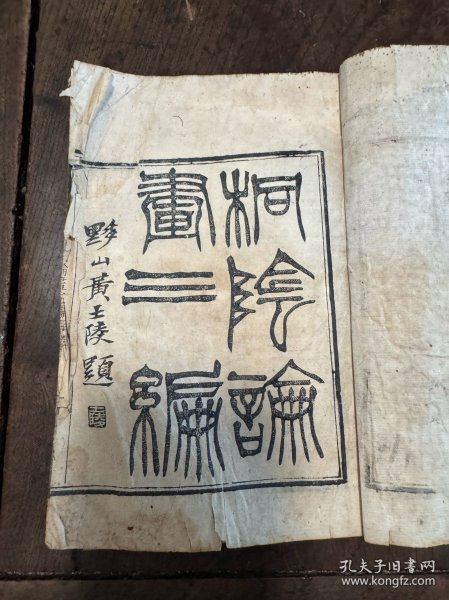 桐陰論
畫三編
黟山黃士陵題
孔夫子旧书网
www.kongfz.com